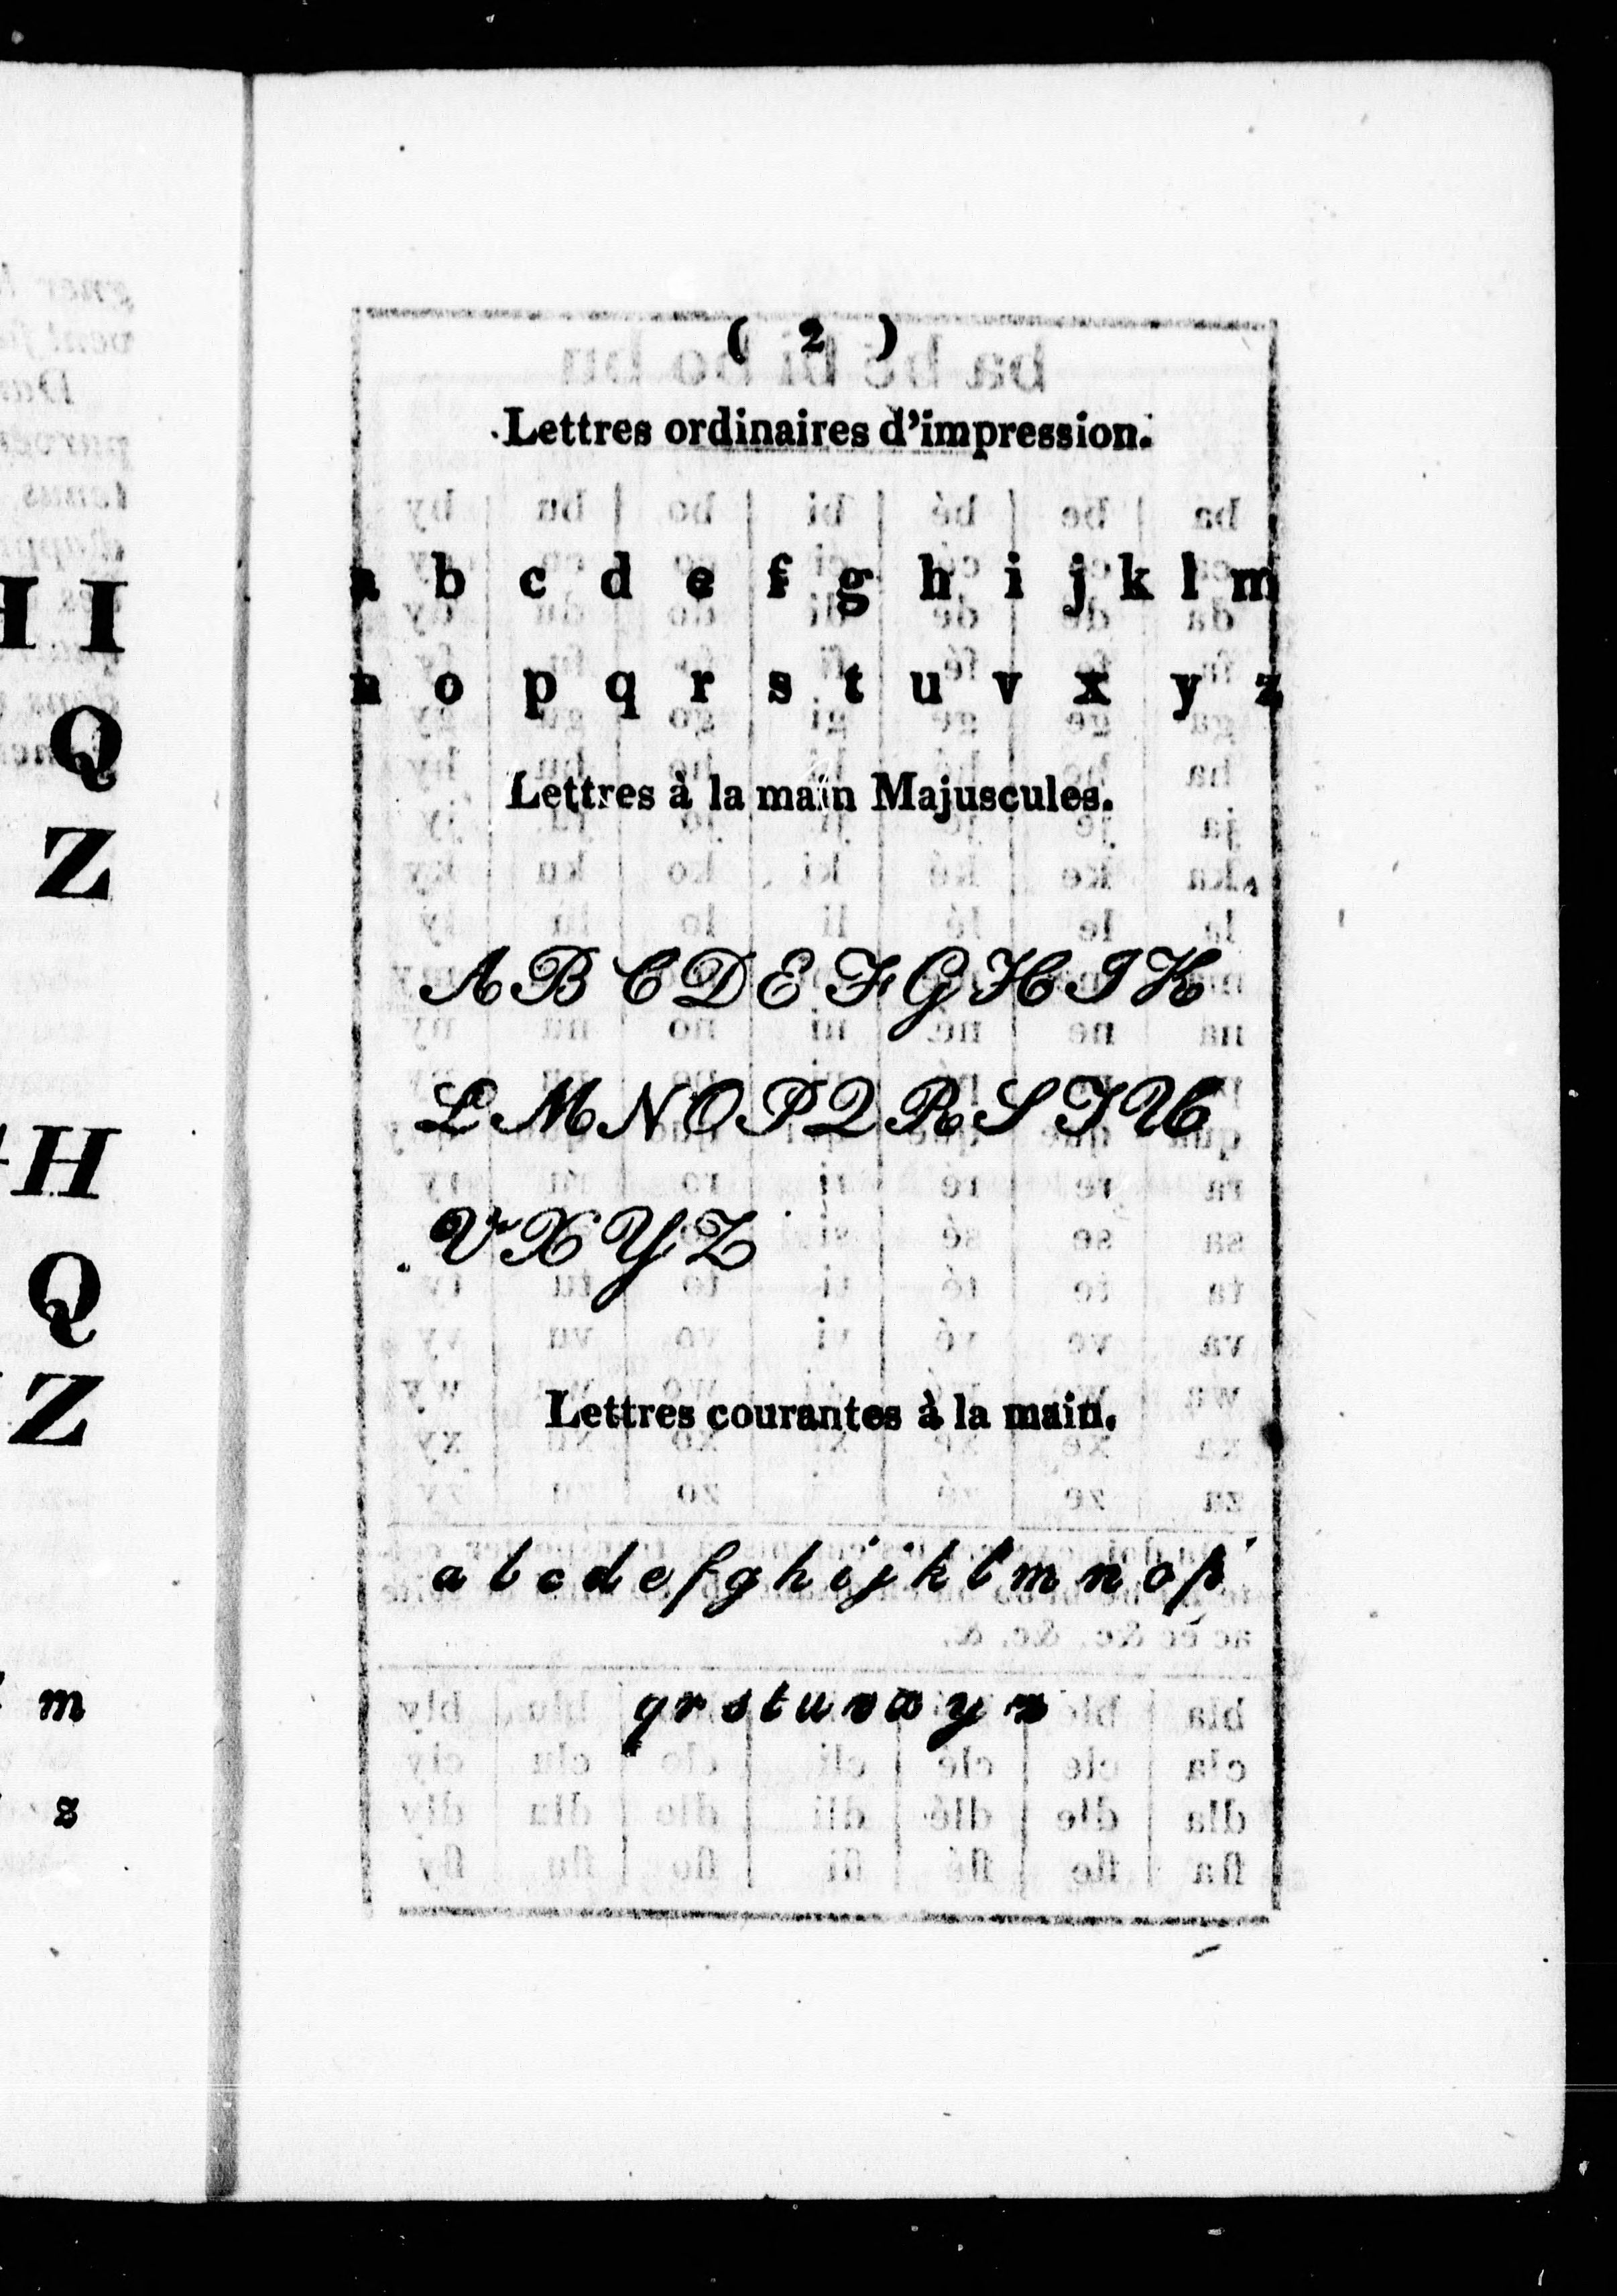 ( 2 )
Lettres ordinaires d'impression.
a b c d e f g h i j k l m
n o p q r s t u v x y z
Lettres à la main Majuscules.
A B C D E F G H I K
L M N O P Q R S T U
V X Y Z
Lettres courantes à la main.
a b c d e f g h i j k l m n o p
q r s t u v x y z
H I
Q
Z
H
Q
Z
m
z